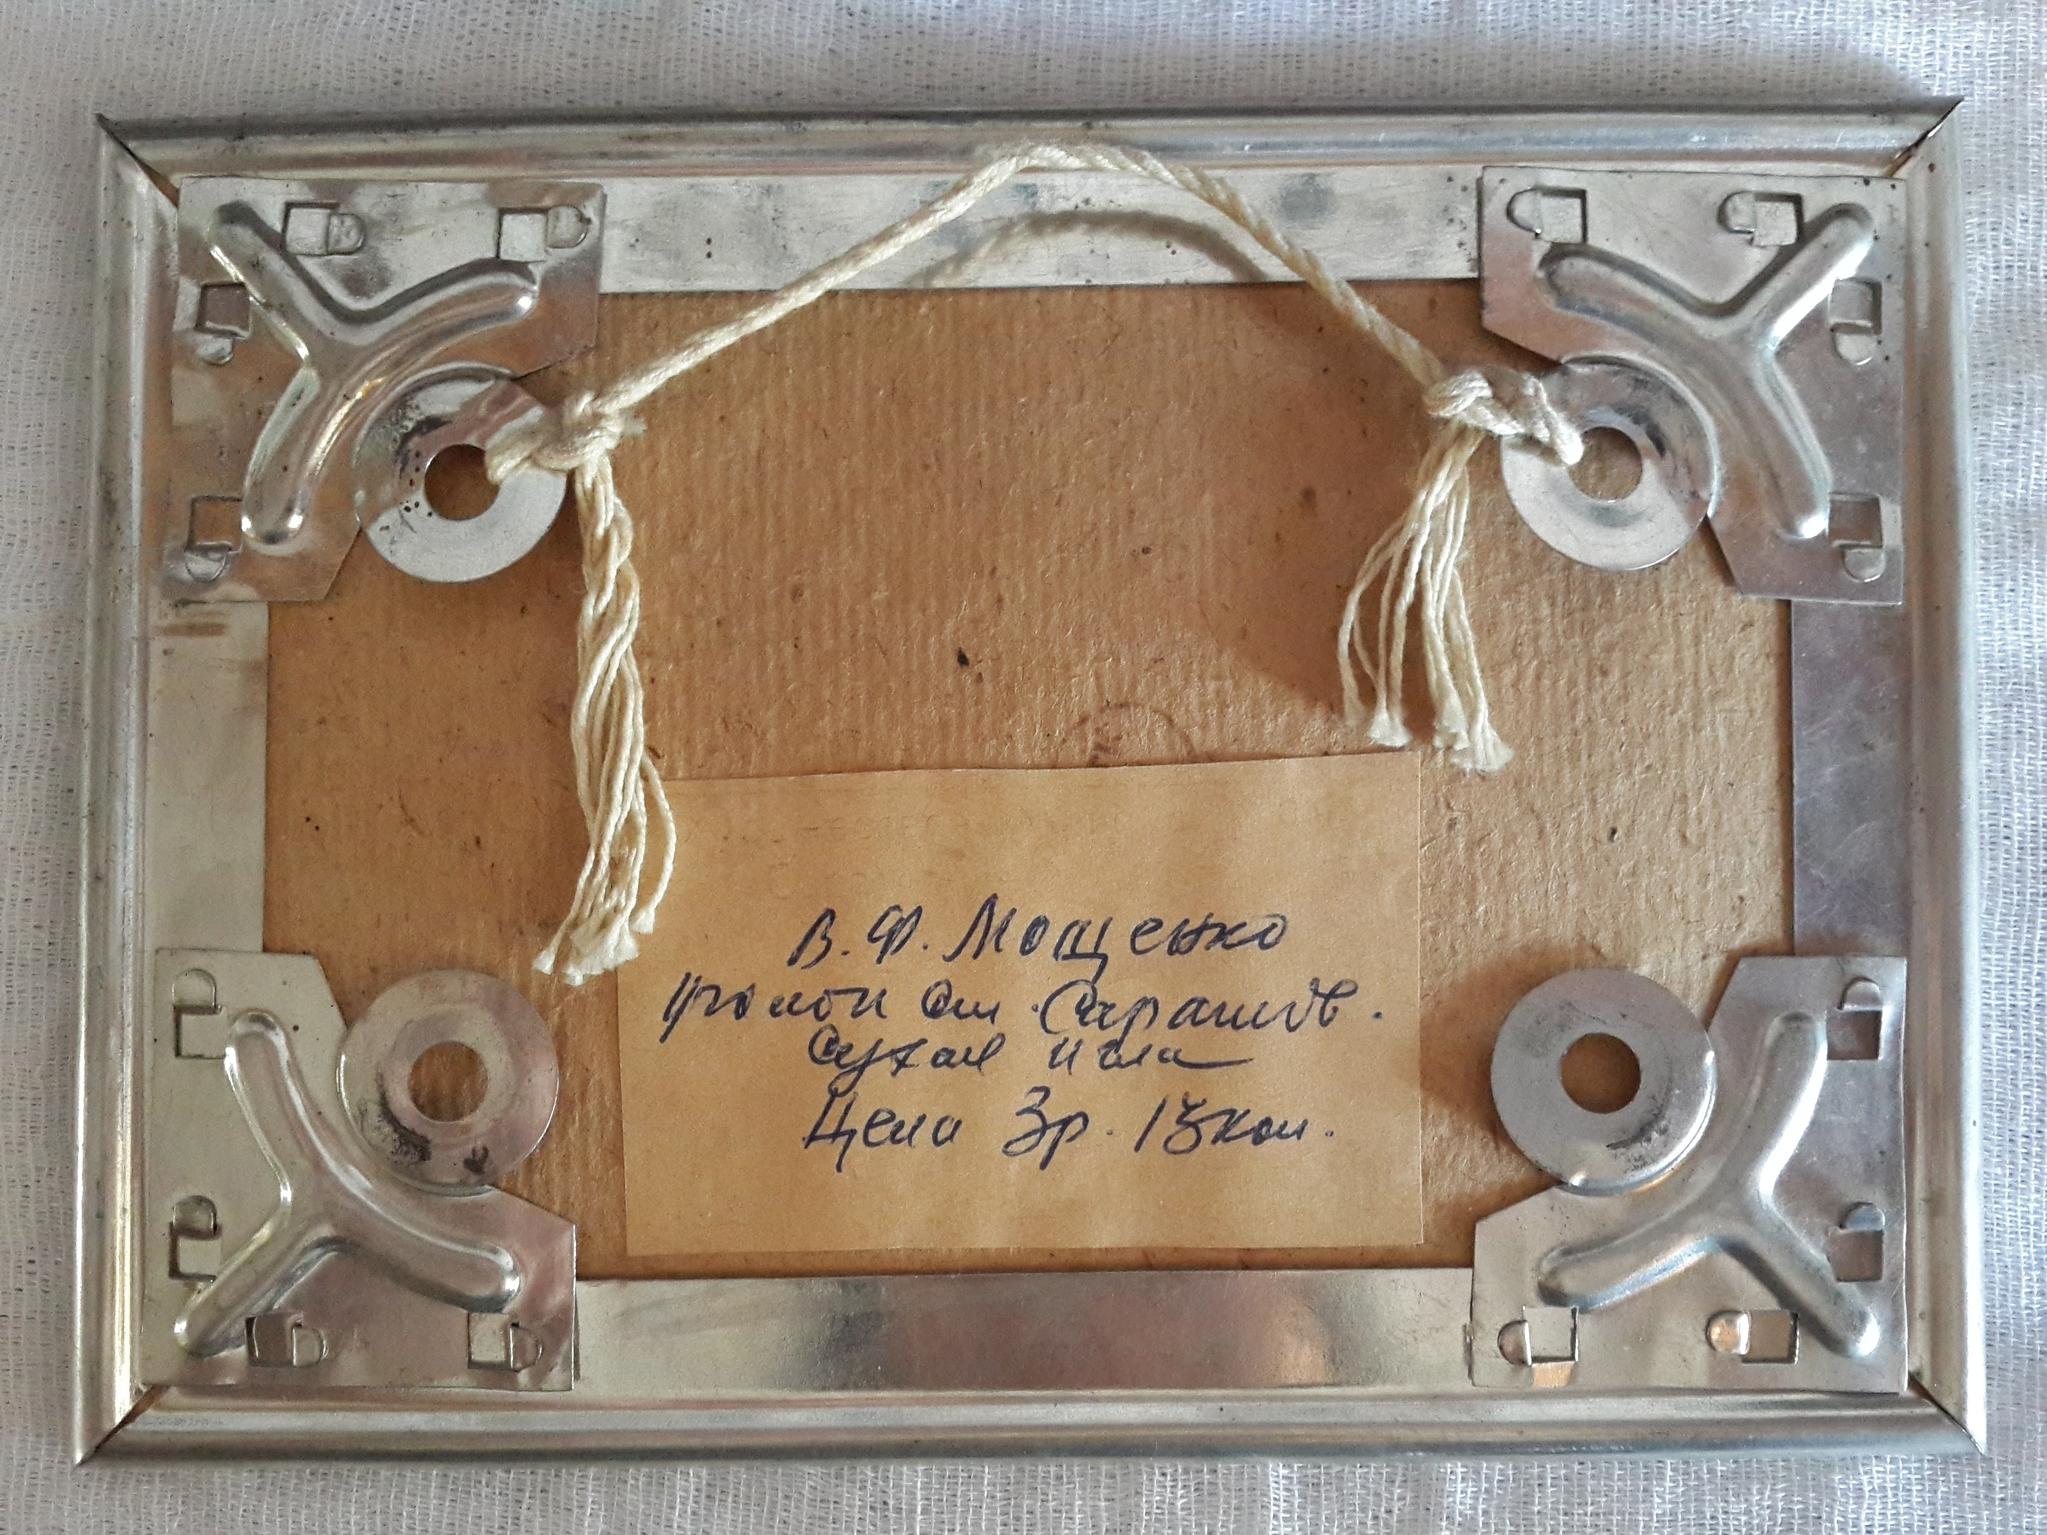 В. Ф. Мощенко
Уголок ст. Саратов.
Сухая игла
Цена 3р. 13коп.